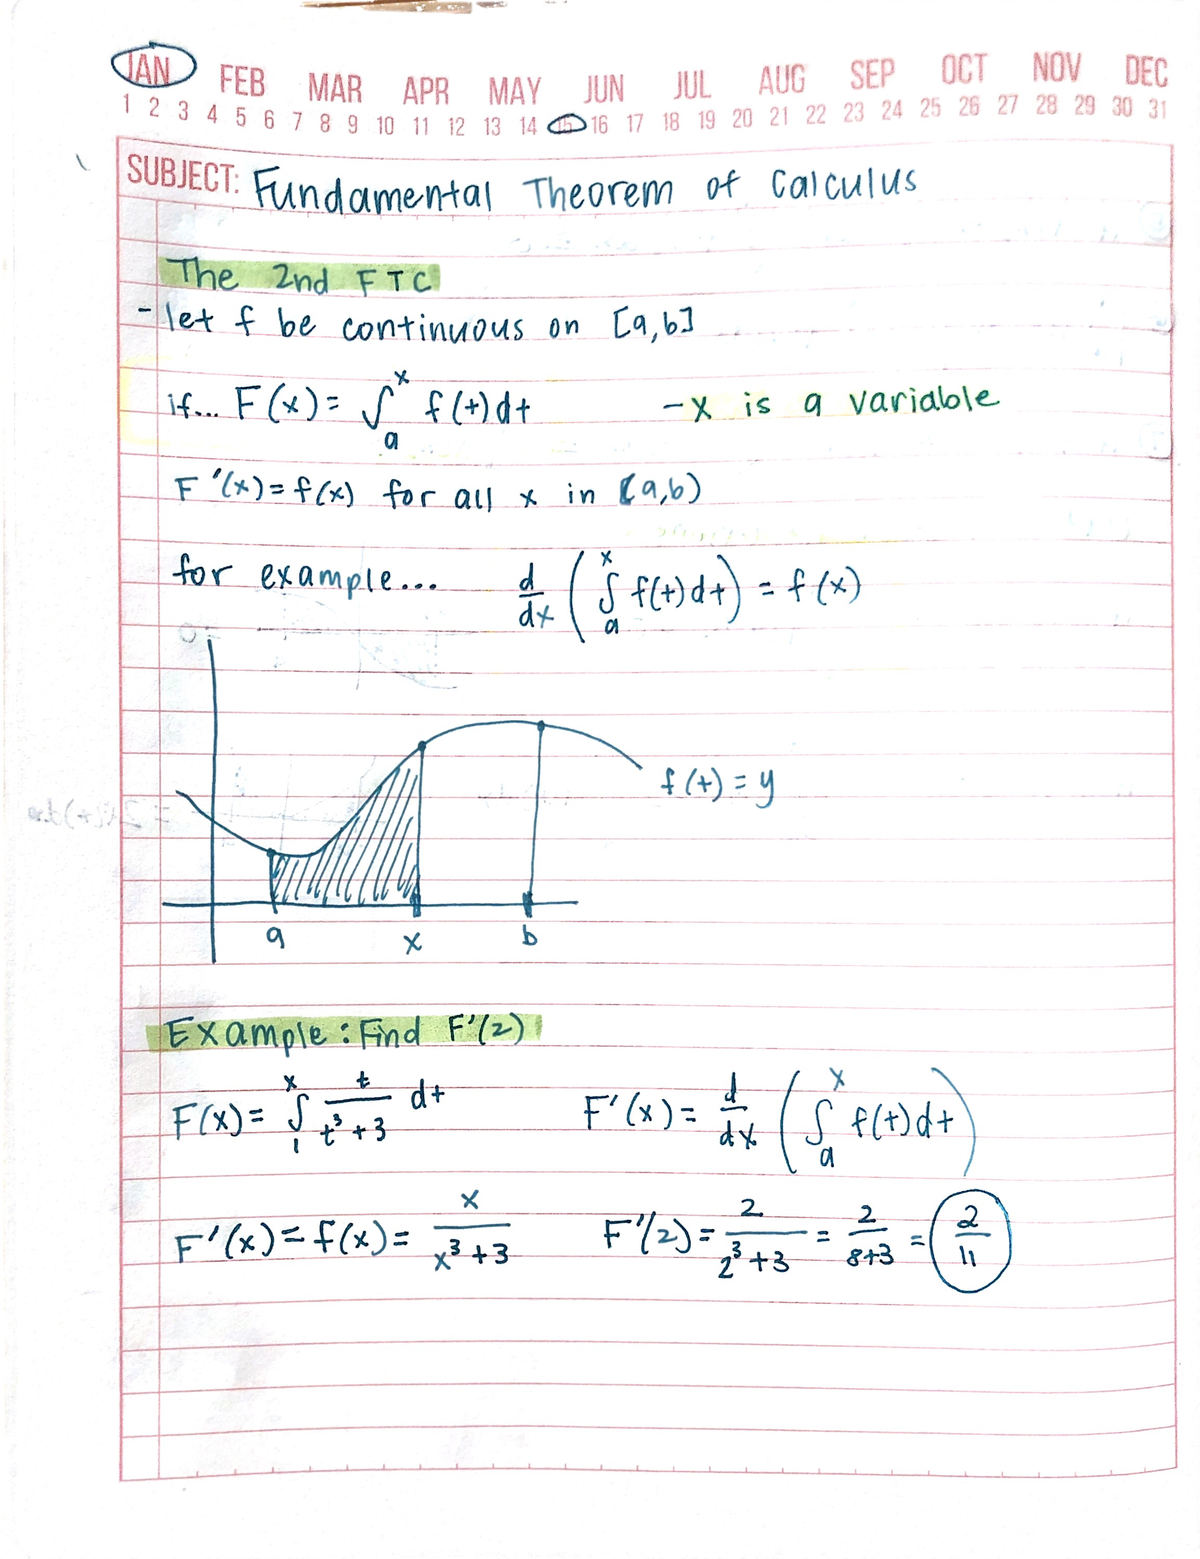 JAN FEB MAR APR MAY JUN JUL AUG SEP OCT NOV DEC
1 2 3 4 5 6 7 8 9 10 11 12 13 14 15 16 17 18 19 20 21 22 23 24 25 26 27 28 29 30 31
SUBJECT: Fundamental Theorem of Calculus
The 2nd FTC
- let f be continuous on [a,b]
if... F(x) = ∫ₐˣ f(t)dt - x is a variable
F'(x) = f(x) for all x in (a,b)
for example... d/dx (∫ₐˣ f(t)dt) = f(x)
f(t) = y
a x b
Example: Find F'(2)
F(x) = ∫₁ˣ t/(t³+3) dt F'(x) = d/dx (∫ₐˣ f(t)dt)
F'(x) = f(x) = x/(x³+3) F'(2) = 2/(2³+3) = 2/(8+3) = 2/11